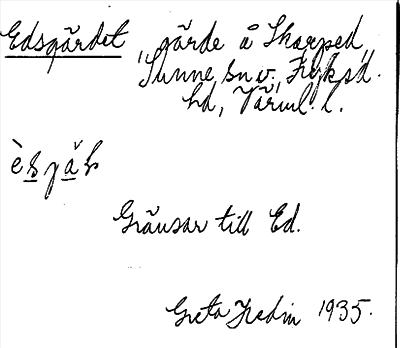 Edsgärdet, gärde å Skarped,
Sunne sn v., Fryksd.
hd, Värml. l.
Gränsar till Ed.
Greta Hedin 1935.